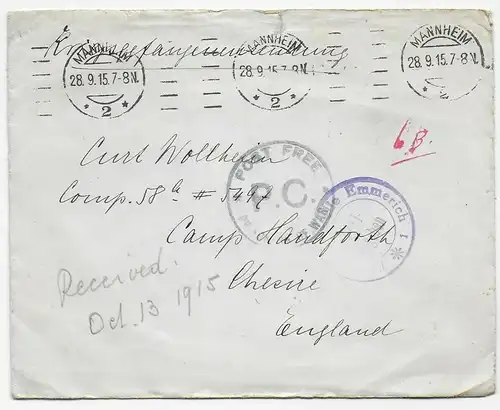 Kriegsgefangenensendung
MANNHEIM
28.9.15.7-8N.
* 2 *
MANNHEIM
28.9.15.7-8N.
* 2 *
MANNHEIM
28.9.15.7-8N.
* 2 *
6B.
Curt Wollheim
Comp. 58a # 5497
Camp Handforth
Chesire
England
POST FREE
P.C.
Emmerich 1
Received.
Oct. 13 1915